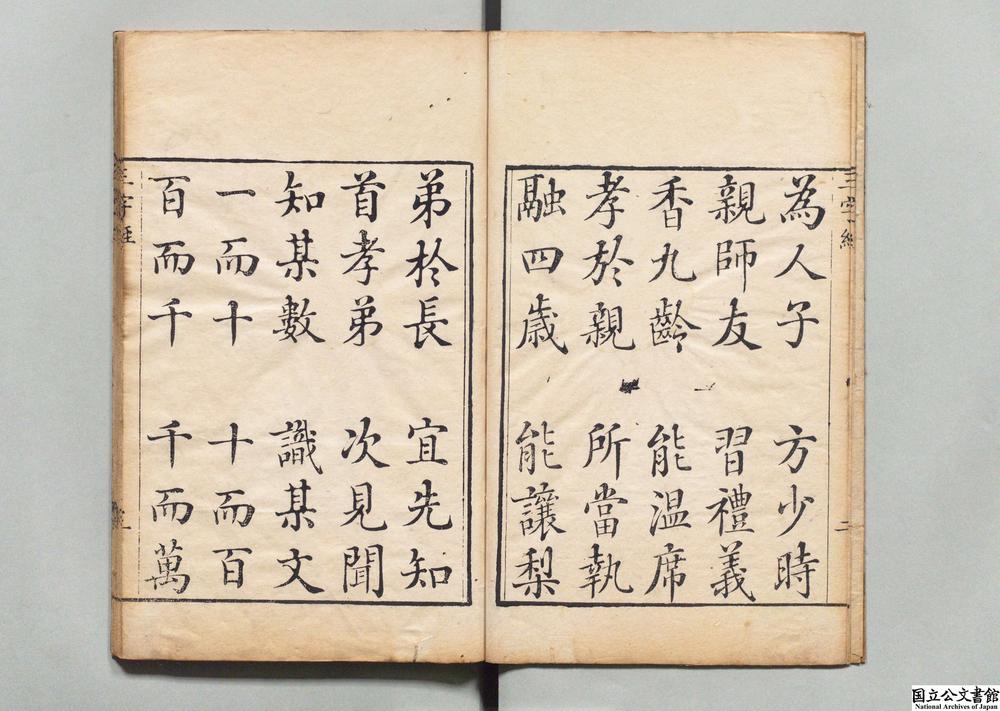 為人子　方少時
親師友　習禮義
香九齡　能温席
孝於親　所當執
融四歲　能讓梨
弟於長　宜先知
首孝弟　次見聞
知某數　識某文
一而十　十而百
百而千　千而萬
三字經
二
三字經
国立公文書館
National Archives of Japan